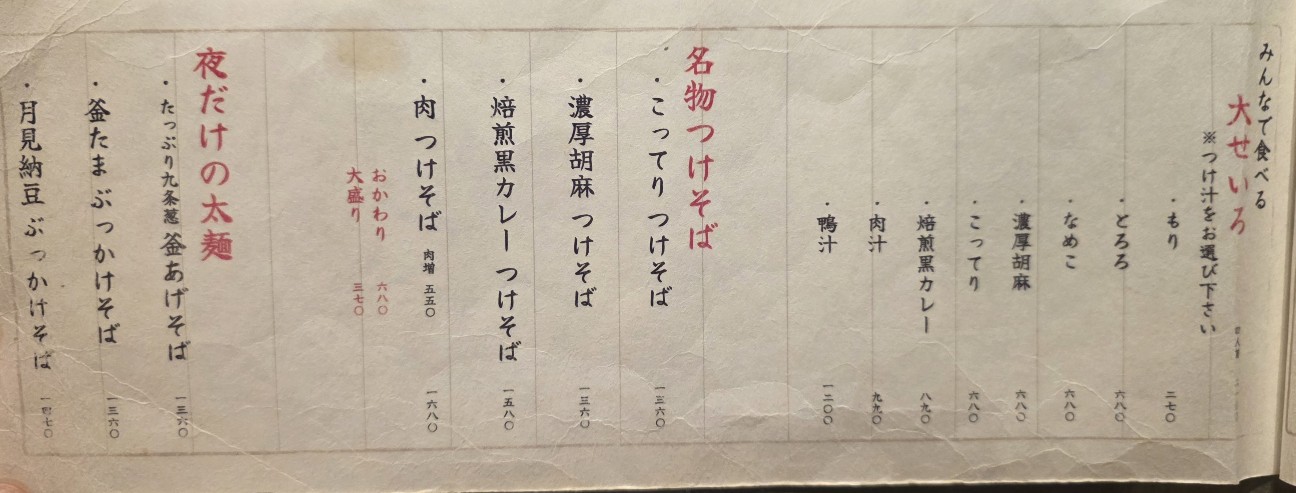 みんなで食べる
大せいろ
※つけ汁をお選び下さい
・もり 二七〇
・とろろ 六八〇
・なめこ 六八〇
・濃厚胡麻 六八〇
・こってり 六八〇
・焙煎黒カレー 八九〇
・肉汁 九九〇
・鴨汁 一二〇〇
名物つけそば
・こってりつけそば 一三六〇
・濃厚胡麻つけそば 一三六〇
・焙煎黒カレーつけそば 一五八〇
・肉つけそば 肉増 五五〇 一六八〇
おかわり 六八〇
大盛り 三七〇
夜だけの太麺
・たっぷり九条葱 釜あげそば 一三六〇
・釜たまぶっかけそば 一三六〇
・月見納豆ぶっかけそば 一四七〇